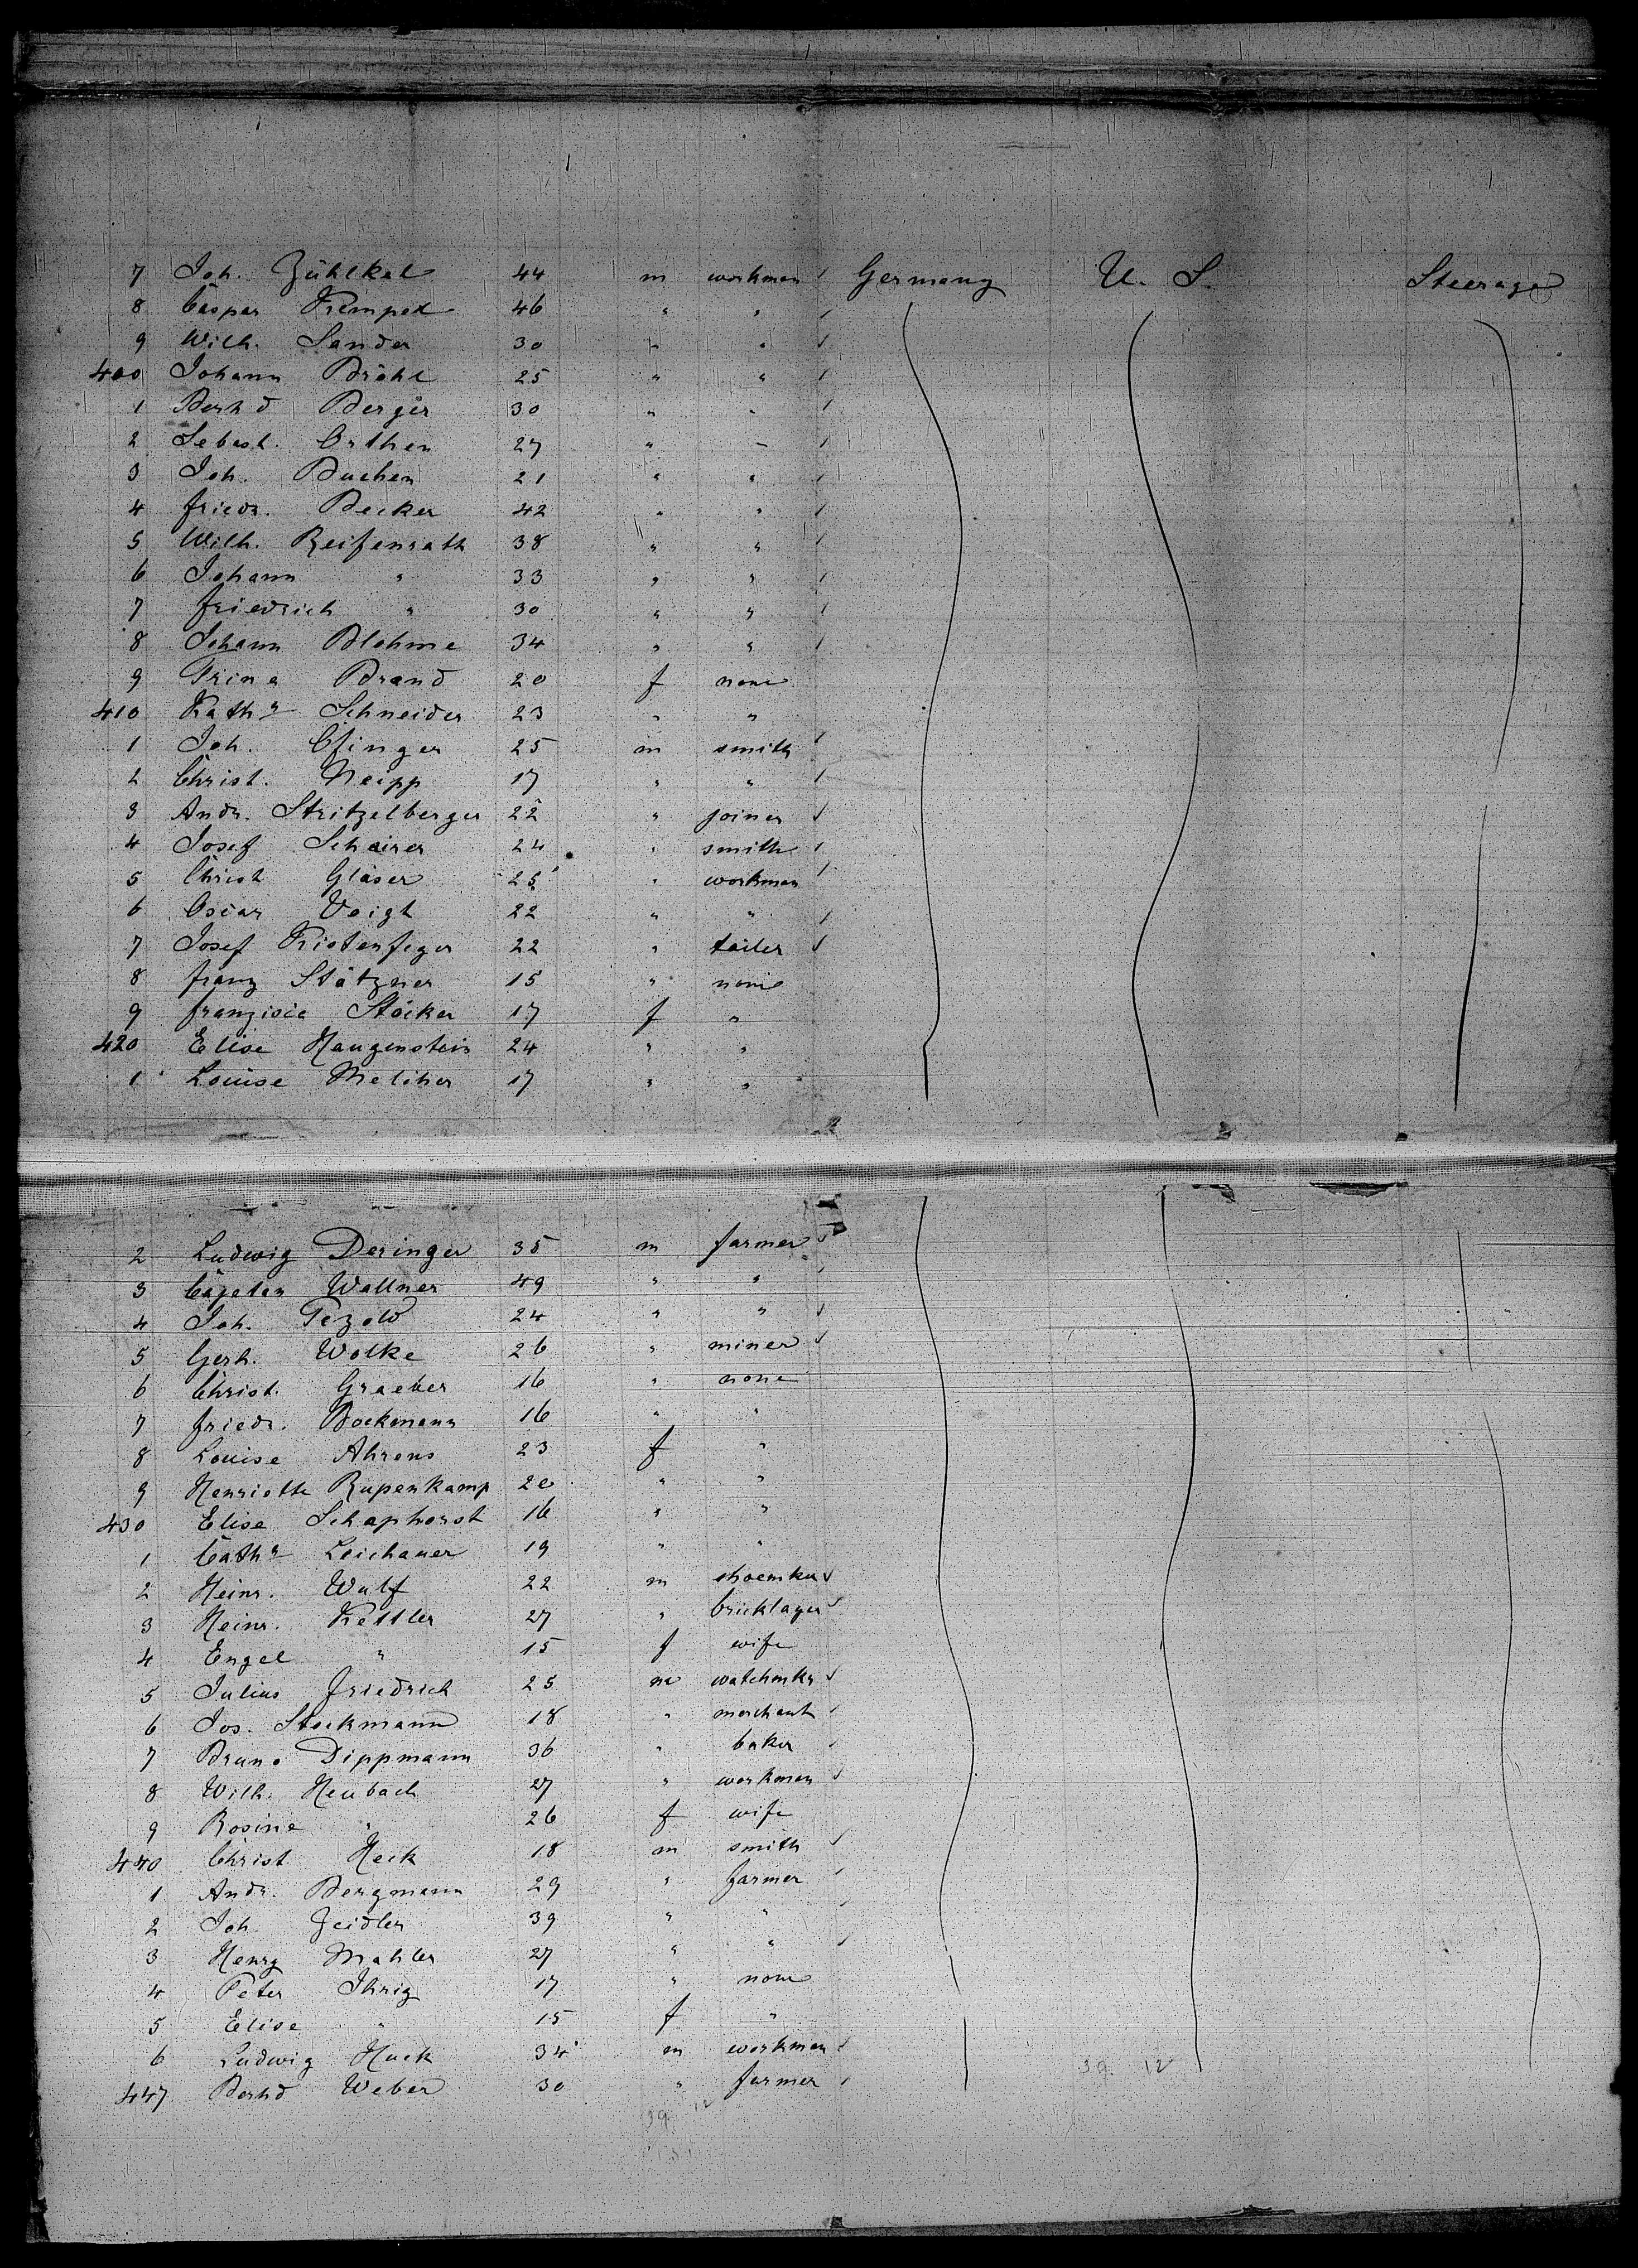 7 Joh. Zühlkel 44 m workman ✓ Germany U. S. Steerage
8 Caspar Krempel 46 " " ✓
9 Wilh. Sander 30 " " ✓
400 Johann Bröhl 25 " " ✓
1 Berhd Berger 30 " " ✓
2 Sebast. Orthen 27 " " ✓
3 Joh. Buchen 21 " " ✓
4 Friedr. Becker 42 " " ✓
5 Wilh. Reifenrath 38 " " ✓
6 Johann " 33 " " ✓
7 Friedrich " 30 " " ✓
8 Johann Blohme 34 " " ✓
9 Trina Brand 20 f none
410 Kath.a Schneider 23 " "
1 Joh. Efinger 25 m smith ✓
2 Christ. Neipp 17 " " ✓
3 Andr. Stritzelberger 22 " joiner ✓
4 Josef Schairer 24 " smith ✓
5 Christ Gläser 25 " workman ✓
6 Oscar Voigt 22 " " ✓
7 Josef Kistenfeger 22 " tailer ✓
8 Franz Stätzner 15 " none
9 Franzisca Stöcker 17 f "
420 Elise Haugenstein 24 " "
1 Louise Melcher 17 " "
2 Ludwig Deringer 35 m farmer ✓
3 Cajetan Wallner 49 " " ✓
4 Joh. Pezold 24 " " ✓
5 Gerh. Wolke 26 " miner ✓
6 Christ. Graeber 16 " none
7 Friedr. Bockmann 16 " "
8 Louise Ahrens 23 f "
9 Henriette Rupenkamp 20 " "
430 Elise Schaphorst 16 " "
1 Cath.a Leichauer 19 " "
2 Heinr. Wulf 22 m shoemker ✓
3 Heinr. Kettler 27 " bricklayer ✓
4 Engel " 15 f wife
5 Julius Friedrich 25 m watchmkr ✓
6 Jos. Stockmann 18 " merchant ✓
7 Bruno Dippmann 36 " baker ✓
8 Wilh. Heubach 27 " workman ✓
9 Rosine " 26 f wife
440 Christ. Heck 18 m smith ✓
1 Andr. Bergmann 29 " farmer ✓
2 Joh. Zeidler 39 " " ✓
3 Henry Mahler 27 " " ✓
4 Peter Ihrig 17 " none
5 Elise " 15 f "
6 Ludwig Huck 34 m workman ✓
447 Berhd Weber 30 " farmer ✓
39. 12
39. 12